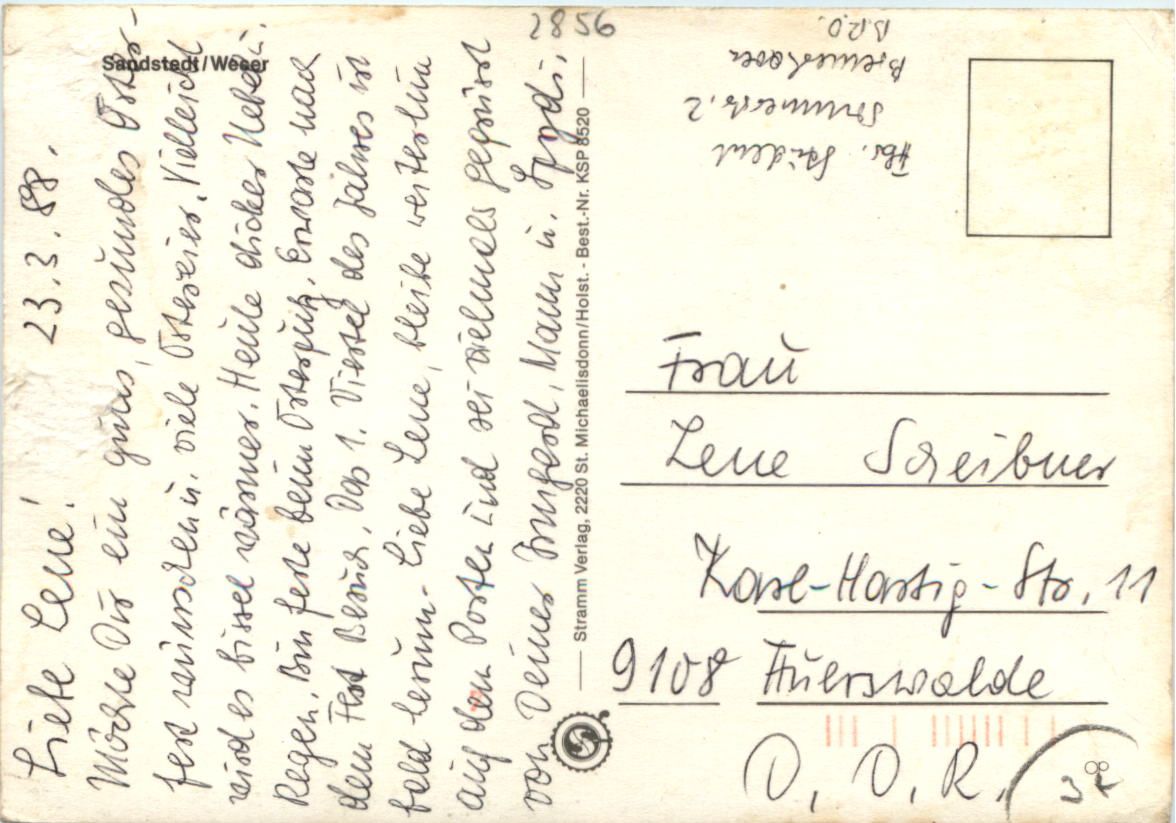 Sandstedt/Weser
23.3.88.
Liebe Lene!
Möchte Dir ein gutes, gesundes Oster-
fest wünschen u. viele Ostereier. Vielleicht
wird es bissel wärmer. Heute dicker Nebel u.
Regen. Bin feste beim Osterputz, Erwarte nach
dem Fest Besuch. Das 1. Viertel des Jahres ist
bald herum. Liebe Lene, bleibe weiterhin
auf dem Posten und sei vielmals gegrüsst
von Deiner Irmgard, Mann u.
Stramm Verlag, 2220 St. Michaelisdonn/Holst. - Best.-Nr. KSP 8520
2856
Abs. Strident
2
Bremerhaven
B.R.D.
Frau
Lene Scheibner
Karl-Hartig-Str. 11
9108 Auerswalde
D. D. R.